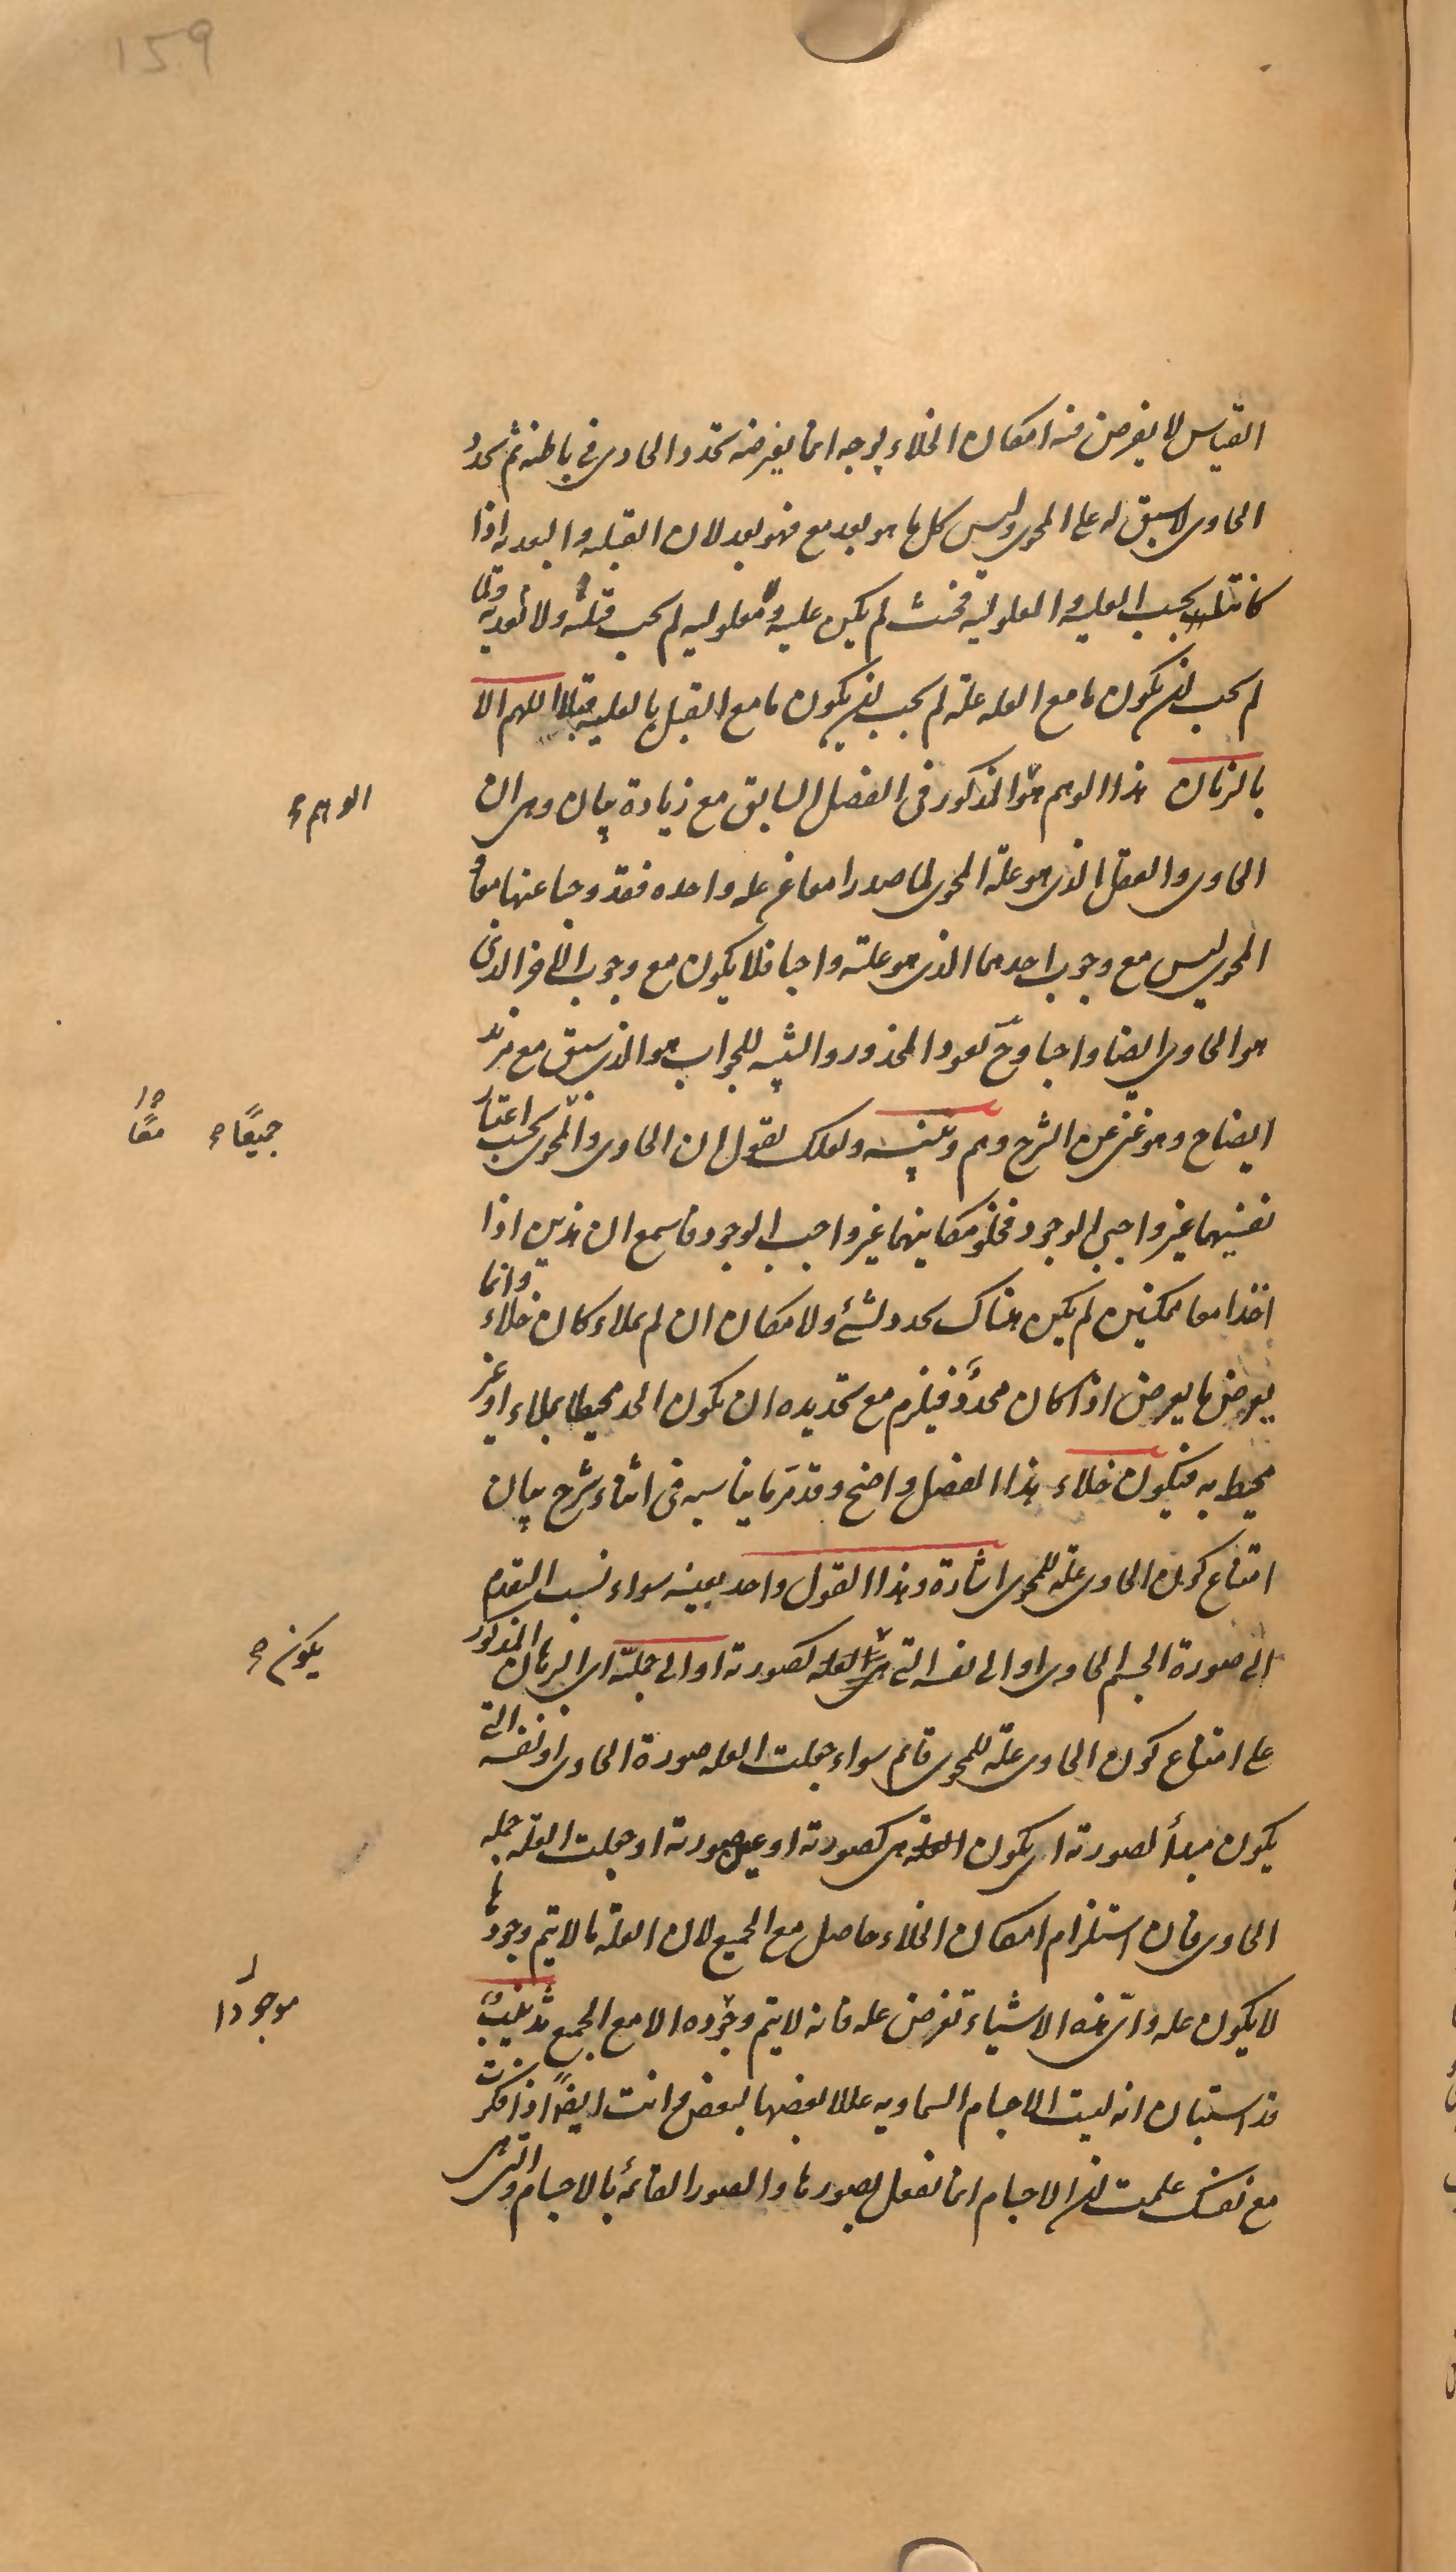 159
القياس لا يفرض منه امكان الخلاء بوجه انما يفرضه تحدد الحاوى فى باطنه ثم تحدد
الحاوى لا سبق له على المحوى وليس كل ما هو بعد مع فهو بعد لان القبلية والبعدية اذا
كانتا بحسب العلية والمعلولية فحيث لم يكن علية ولا معلولية لم يجب قبلية ولا بعدية ولما
لم يجب ان يكون ما مع العله علة لم يجب ان يكون ما مع القبل بالعلية قبلا اللهم الا
بالزمان هذا الوهم هو المذكور فى الفصل السابق مع زيادة بيان وهى ان
الوهم
الحاوى والعقل الذى هو علة المحوى لما صدرا معا عن علة واحده فقد وجبا عنها معا و
المحوى ليس مع وجوب احدهما الذى هو علته واجبا فلا يكون مع وجوب الاخر الذى
هو الحاوى ايضا واجبا وح يعود المحذور والتنبيه للجواب هو الذى سبق مع مزيد
ايضاح وهو غنى عن الشرح وهم وتنبيه ولعلك تقول ان الحاوى والمحوى بحسب اعتبار
جميعًا معًا
نفسيهما غير واجبى الوجود فخلو مكانيهما غير واجب الوجود فاسمع ان هذين اذا
اخذا معا ممكنين لم يكن هناك تحدد لشئ ولا مكان ان لم يملاء كان خلاء وانما
يعرض ما يعرض اذا كان محدد فيلزم مع تحديده ان يكون الحد محيطا بملاء او غير
محيط به فيكون خلاء هذا الفصل واضح وقد مر ما يناسبه فى اثناء شرح بيان
امتناع كون الحاوى علة للمحوى اشارة وهذا القول واحد بعينه سواء نسب التقدم
الى صورة الجسم الحاوى او الى نفسه التى هى العله كصورته او الى جملته اى البرهان المذكور
يكون
على امتناع كون الحاوى علة للمحوى قائم سواء جعلت العله صورة الحاوى او نفسه التى
يكون مبدأ لصورته اى يكون العله هى كصورته او عين صورته او جعلت العلة جمله
الحاوى فان استلزام امكان الخلاء حاصل مع الجميع لان العلة ما لا يتم وجودها
لا يكون علة واى هذه الاشياء تفرض علة فانه لا يتم وجوده الا مع الجميع تذنيب
موجودا
قد استبان انه ليست الاجسام السماويه عللا بعضها لبعض وانت ايضًا اذا فكرت
مع نفسك علمت ان الاجسام انما تفعل بصورها والصور القائمة بالاجسام والتى هى